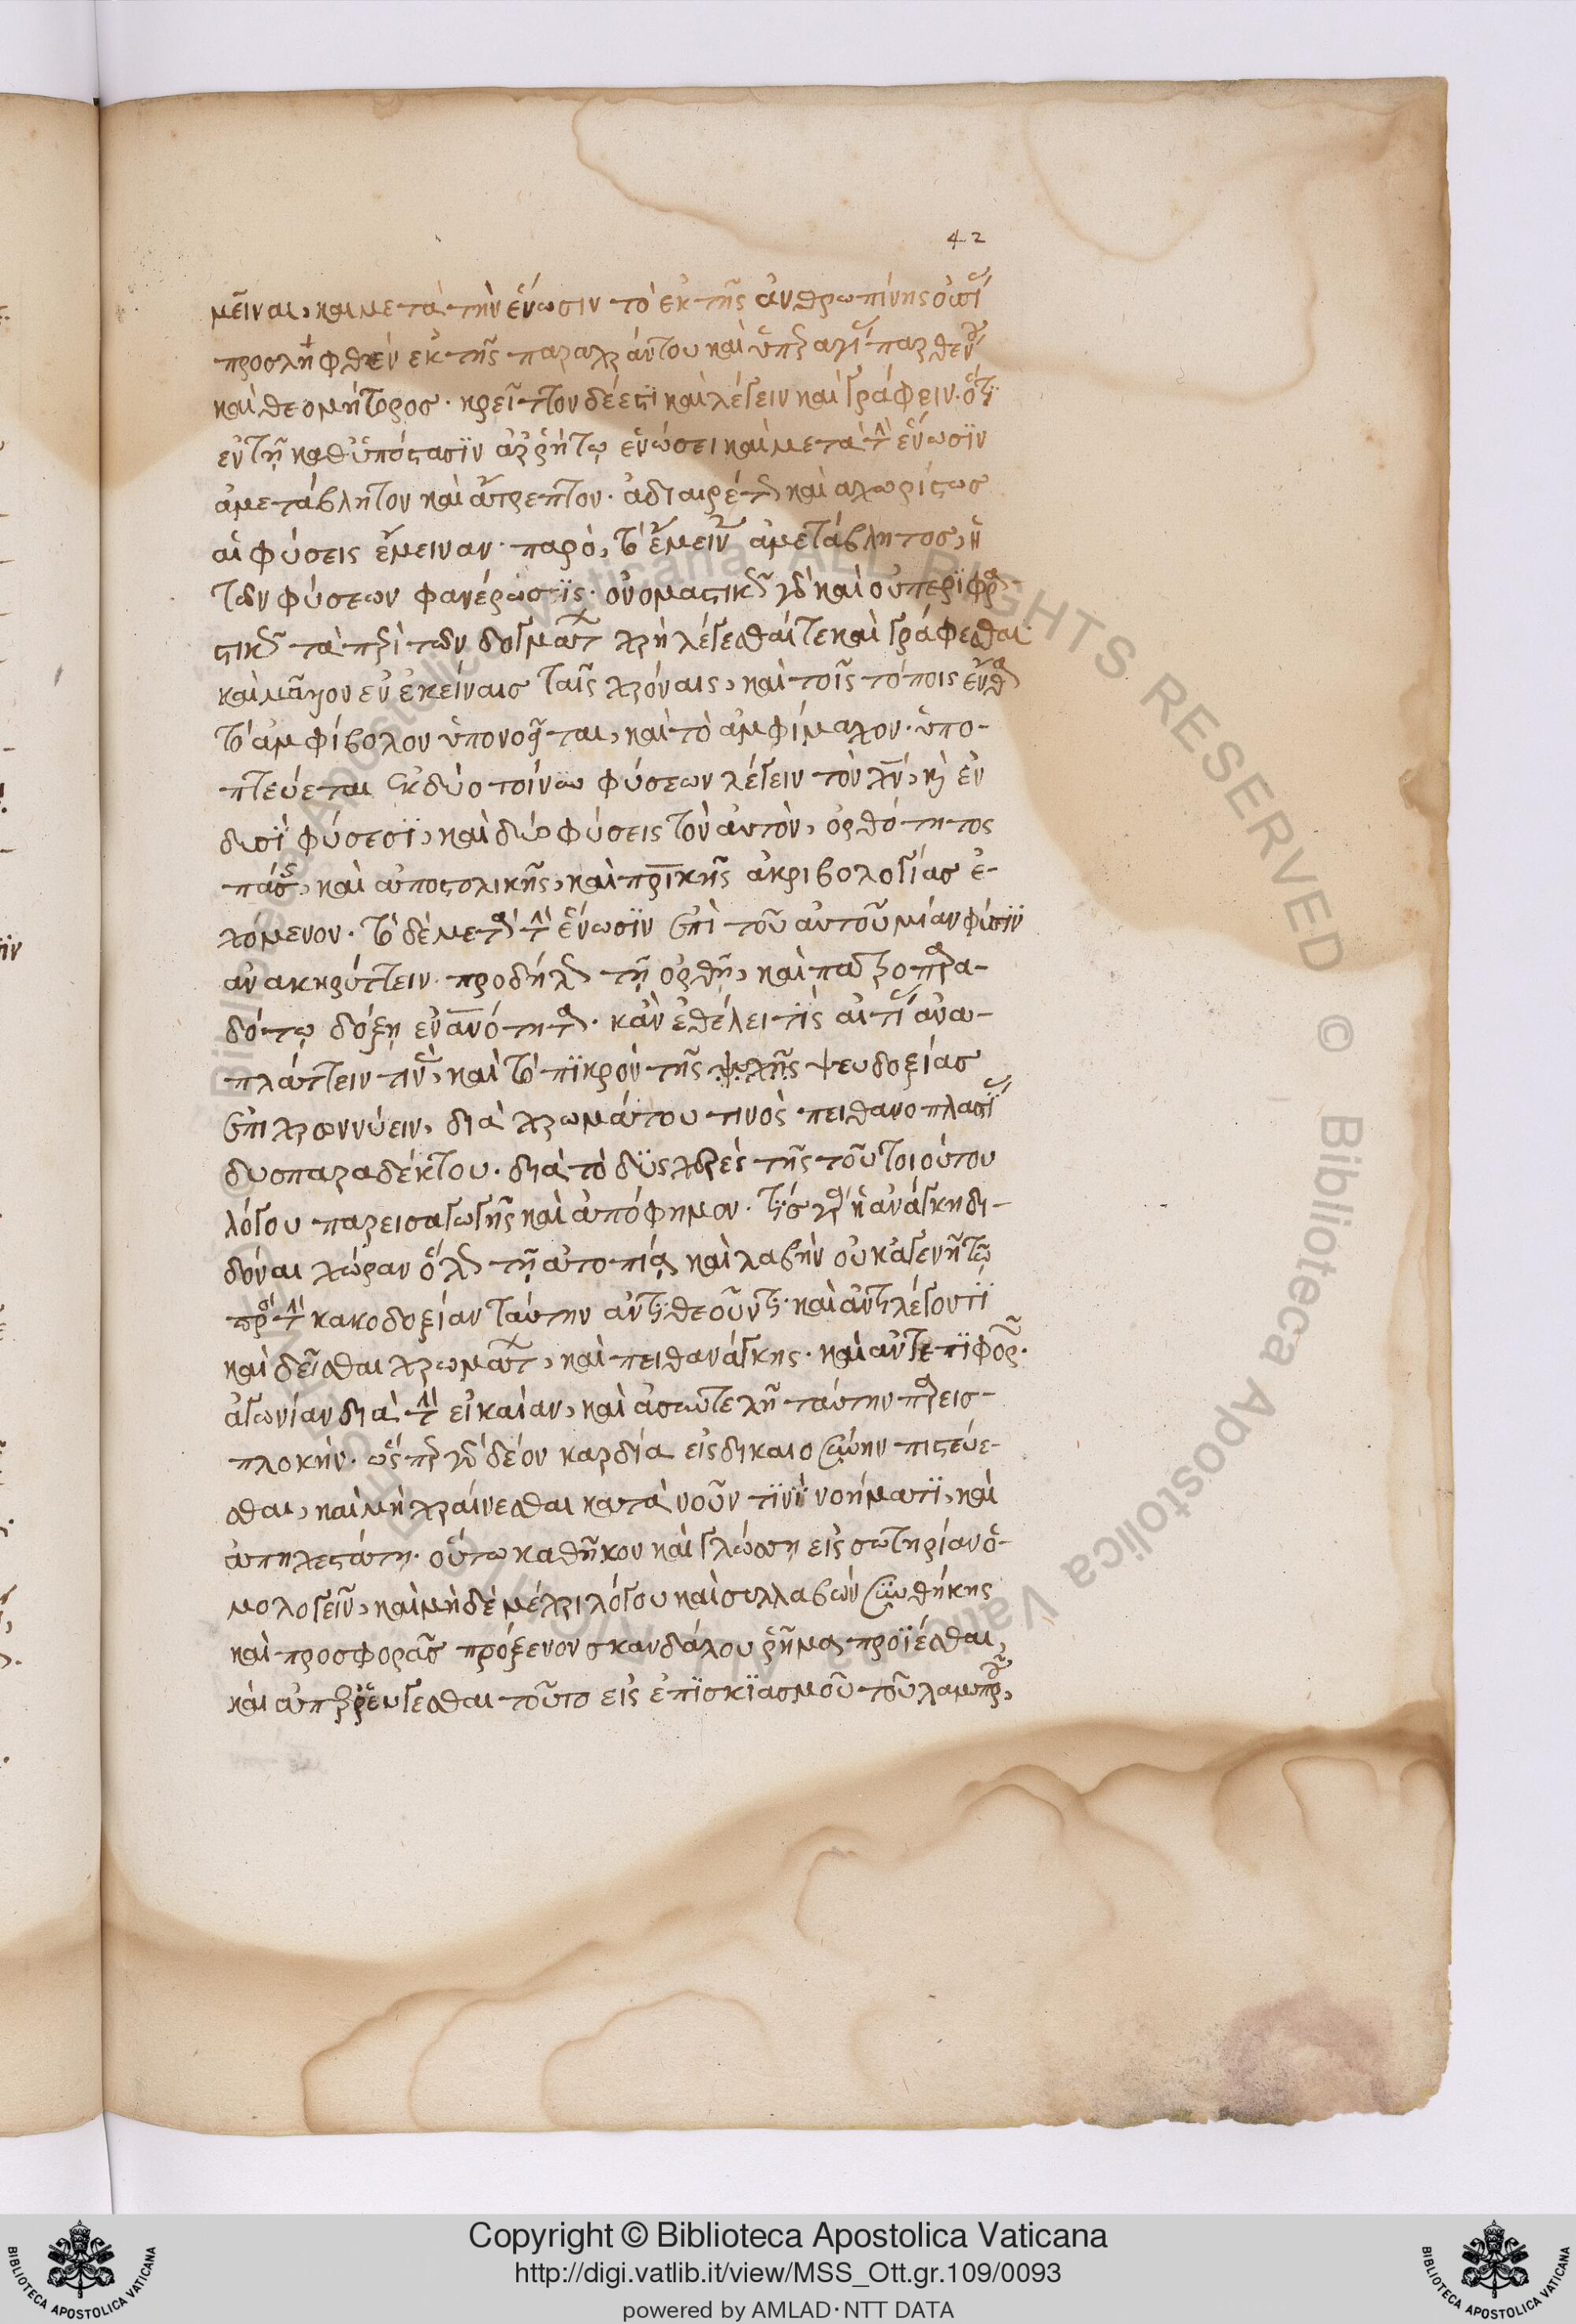 42
μεῖναι, και μετὰ τὴν ἕνωσιν τὸ ἐκ τῆς ἀνθρωπίνης οὐσί
προσληφθὲν ἐκ τῆς παναχράντου καὶ ὑπὲρ αγί παρθέν
καὶ θεομήτορος. κρεῖττον δέ ἐστι καὶ λέγειν καὶ γράφειν. ὅτι
ἐν τῇ καθ' ὑπόστασϊν ἀρρήτῳ ἑνώσει καὶ μετὰ τὴν ἕνωσϊν
ἀμετάβλητον καὶ ἄτρεπτον. ἀδιαιρέτ καὶ αχωρίστως
αἱ φύσεις ἔμειναν. παρὸ, τὸ ἔμειν ἀμετάβλητος, ἡ
τῶν φύσεων φανέρωσϊς. ὀνομαστικῶς καὶ οὐ περϊφρ
στικῶς τὰ περὶ τῶν δογμάτων χρὴ λέγεσθαί τε καὶ γράφεσθαι.
καὶ μᾶλλον ἐν ἐκείναις ταῖς χρόναις, καὶ τοῖς τόποις ἔνθα
τὸ ἀμφίβολον ὑπονοεῖται, καὶ τὸ ἀμφίμαχον. ὑπο-
πτεύεται ἐκ δύο τοίνυν φύσεων λέγειν τὸν χν, κὶ ἐν
δυσϊ φύσεσϊ, καὶ δύο φύσεις τὸν αυτὸν, ὀρθότητος
πάσης, καὶ ἀποστολικῆς, καὶ πρικῆς ἀκριβολογίας ἐ-
χόμενον. τὸ δὲ μετὰ τὴν ἕνωσϊν ἐπὶ τοῦ αὐτοῦ μίαν φύσϊν
ανακηρύττειν. προδήλ τῇ ὀρθῇ, καὶ πατροπαρα-
δότῳ δόξῃ ἐνανότητα. κἂν ἐθέλει τὶς αἰτί ἀνα-
πλάττειν τιν, καὶ τὸ πϊκρὸν τῆς ψυχῆς ψευδοξίας
ἐπιχρωννύειν, διὰ χρωμάτου τινὸς πειθανοπλασϊ
δυσπαραδέκτου. διὰ τὸ δϋσχερὲς τῆς τοῦ τοιούτου
λόγου παρεισαγωγῆς καὶ ἀπόφημον. τίς γὰρ ἡ ἀνάγκη δι-
δόναι χώραν ὅλ τῇ ἀτοπίᾳ καὶ λαβὴν οὐκ ἀγενῆ τῷ
πρὸς τὴν κακοδοξίαν ταύτην ἀντιθεοῦντι. καὶ ἀντιλέγοντϊ
καὶ δεῖσθαι χρωμάτ, καὶ πειθανάγκης. καὶ ἀντεπϊφορ.
ἀγωνίαν διὰ τὴν εἰκαίαν, καὶ ἀσυντελῆ ταύτην παρεισ-
πλοκήν. ὥσπερ γὰρ δέον καρδία εἰς δικαιοσύνην πιστεύε-
σθαι, καὶ μὴ χραίνεσθαι κατὰ νοῦν τϊνϊ νοήματϊ, καὶ
ἀπηχεστάτῃ. οὕτω καθῆκον καὶ γλώσσῃ εἰς σωτηρίαν ὁ-
μολογεῖν, καὶ μὴ δὲ μέχρι λόγου καὶ συλλαβῶν συνθήκης
καὶ προσφορᾶς πρόξενον σκανδάλου ῥῆμα προϊέσθαι,
καὶ ἀπερρεύγεσθαι τοῦτο εἰς ἐπϊσκϊασμοῦ τοῦ λαμπρ,
Copyright © Biblioteca Apostolica Vaticana
http://digi.vatlib.it/view/MSS_Ott.gr.109/0093
powered by AMLAD·NTT DATA